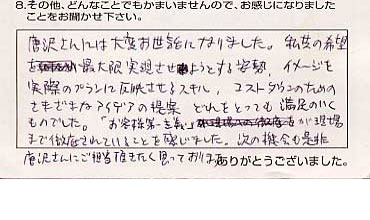 8.その他、どんなことでもかまいませんので、お感じになりました
ことをお聞かせ下さい。
唐沢さんには大変お世話になりました。私共の希望
を最大限実現させようとする姿勢、イメージを
実際のプランに反映させるスキル、コストダウンのための
さまざまなアイデアの提案 どれをとっても満足のいく
ものでした。「お客様第一主義」が現場
まで徹底されていることを感じました。次の機会も是非
唐沢さんにご担当頂きたく思っております。
ありがとうございました。